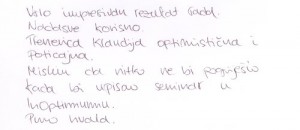 Vrlo impresivan rezultat rada.
Nadasve korisno.
Trenerica Klaudija optimistična i
poticajna.
Mislim da nitko ne bi pogriješio
kada bi upisao seminar u
InOptimumu.
Puno hvala.